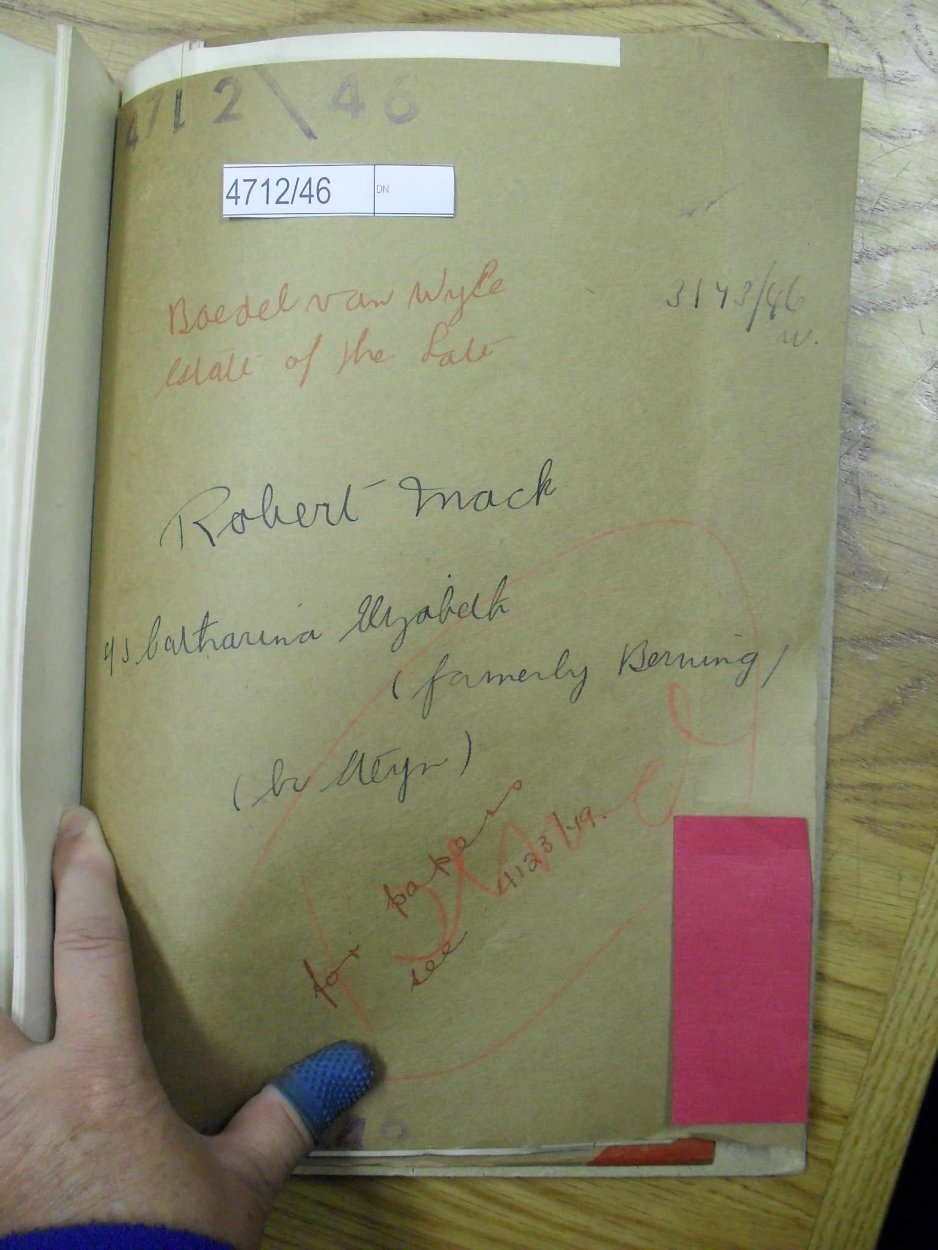 4712\46
4712/46 DN
Boedel van Wyle
Estate of the Late
3143/46
w.
Robert Mack
Catharina Elizabeth
(formerly Berning)
(b Steyn)
for papers
see 4123/49.